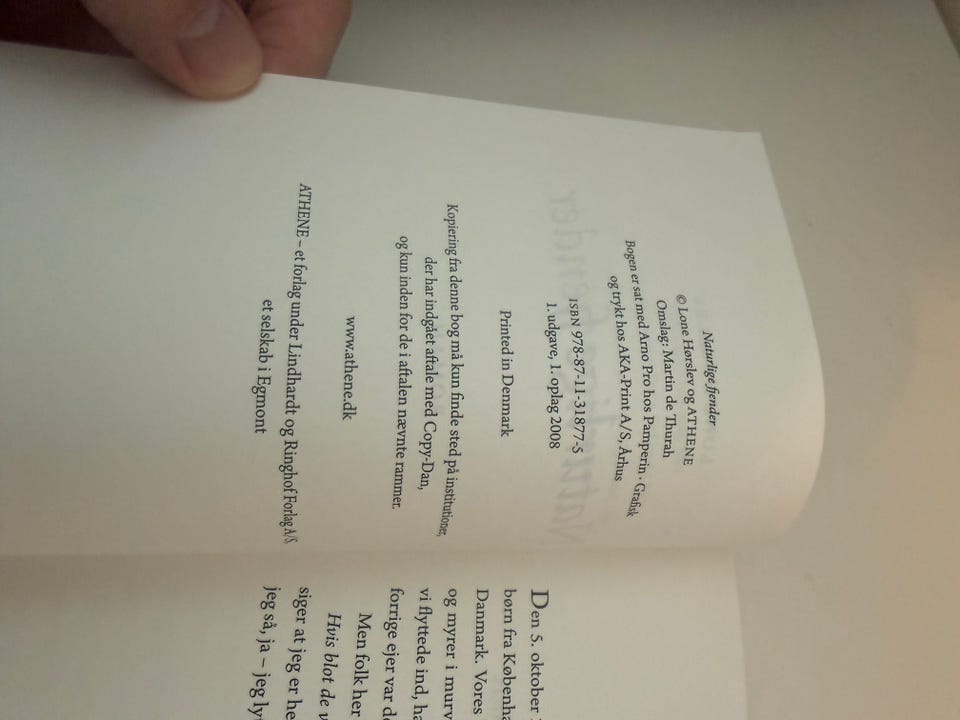 Naturlige fjender
© Lone Hørslev og ATHENE
Omslag: Martin de Thurah
Bogen er sat med Arno Pro hos Pamperin · Grafisk
og trykt hos AKA-Print A/S, Århus
ISBN 978-87-11-31877-5
1. udgave, 1. oplag 2008
Printed in Denmark
Kopiering fra denne bog må kun finde sted på institutioner,
der har indgået aftale med Copy-Dan,
og kun inden for de i aftalen nævnte rammer.
www.athene.dk
ATHENE – et forlag under Lindhardt og Ringhof Forlag A/S,
et selskab i Egmont
Den 5. oktober
børn fra Københa
Danmark. Vores
og myrer i murv
vi flyttede ind, ha
forrige ejer var de
Men folk her
Hvis blot de v
siger at jeg er he
jeg så, ja – jeg ly